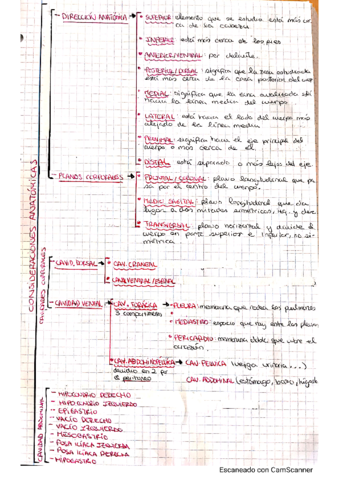 CONSIDERACIONES ANATÓMICAS
- DIRECCIÓN ANATÓMICA
• SUPERIOR elemento que se estudia está más cerca de la cabeza
• INFERIOR está más cerca de los pies
• ANTERIOR/VENTRAL por delante.
• POSTERIOR/DORSAL: significa que la zona estudiada está más cerca de la cara posterior del
• MEDIAL: significa que la zona analizada está hacia la línea media del cuerpo
• LATERAL: está hacia el lado del cuerpo más alejado de la línea media
• PROXIMAL: significa hacia el eje principal del cuerpo o más cerca de él.
• DISTAL está separado o más lejos del eje.
- PLANOS CORPORALES
• FRONTAL/CORONAL: plano longitudinal que pasa por el centro del cuerpo.
• MEDIO SAGITAL: plano longitudinal que da lugar a dos mitades simétricas, izq. y dere
• TRANSVERSAL: plano horizontal y divide el cuerpo en parte superior e inferior, no simétrica
CAVIDADES CORPORALES
- CAVID. DORSAL
• CAV. CRANEAL
• CAV. VERTEBRAL/ESPINAL
- CAVIDAD VENTRAL
• CAV. TORÁCICA
3 compartimentos
• PLEURA: membrana que rodea los pulmones
• MEDIASTINO: espacio que hay entre los
• PERICARDIO: membrana doble que cubre el corazón
• CAV. ABDOMINOPÉLVICA
dividido en 2 por el peritoneo
CAV. PÉLVICA (vejiga urinaria...)
CAV. ABDOMINAL (estómago, bazo, hígado
CAVIDAD ABDOMINAL
- HIPOCONDRIO DERECHO
- HIPOCONDRIO IZQUIERDO
- EPIGASTRIO
- VACÍO DERECHO
- VACÍO IZQUIERDO
- MESOGASTRIO
- FOSA ILÍACA IZQUIERDA
- FOSA ILÍACA DERECHA
- HIPOGASTRIO
Escaneado con CamScanner